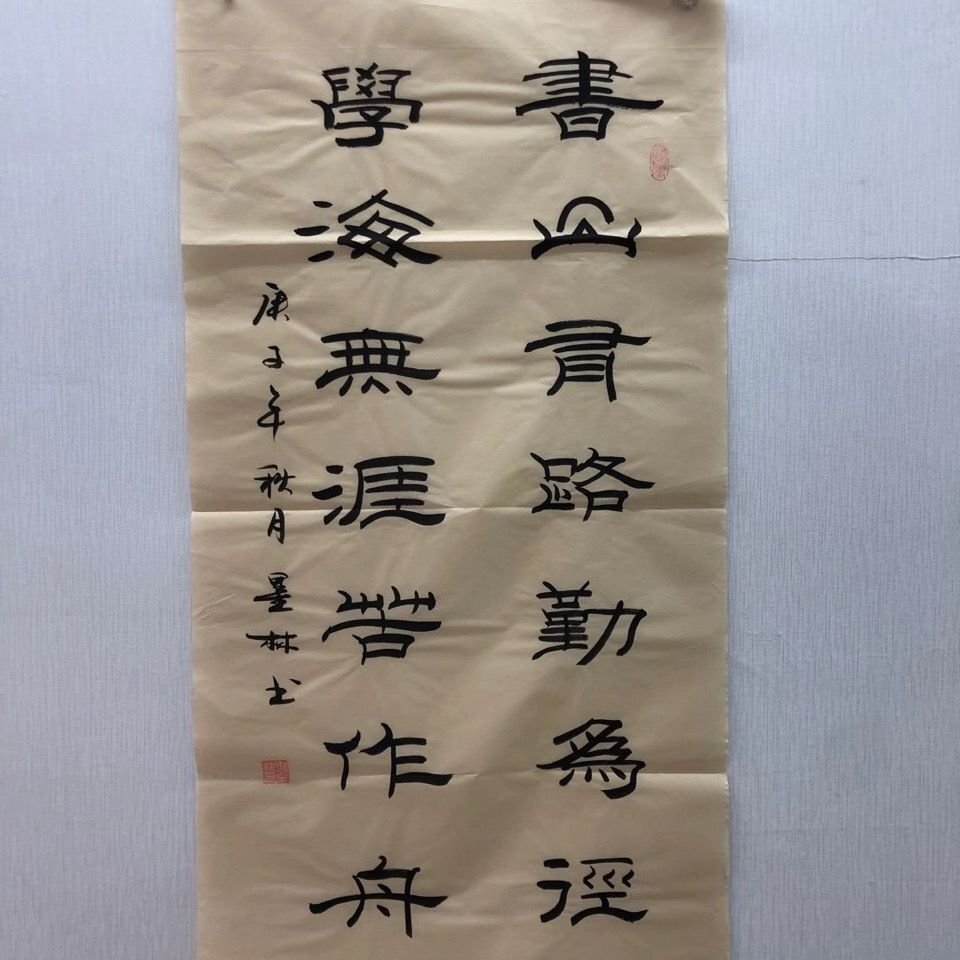 書山有路勤為徑
學海無涯苦作舟
庚子年秋月墨林书